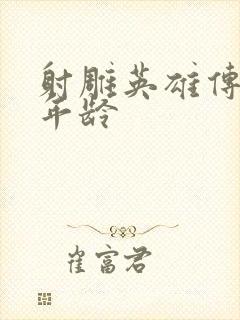 射雕英雄傳
年龄
崔富君